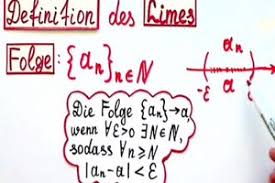 Definition des Limes
Folge: {aₙ}ₙ∈N
aₙ
-ε a ε
Die Folge {aₙ}→a,
wenn ∀ε>0 ∃N∈N,
sodass ∀n≥N
|aₙ-a|<ε